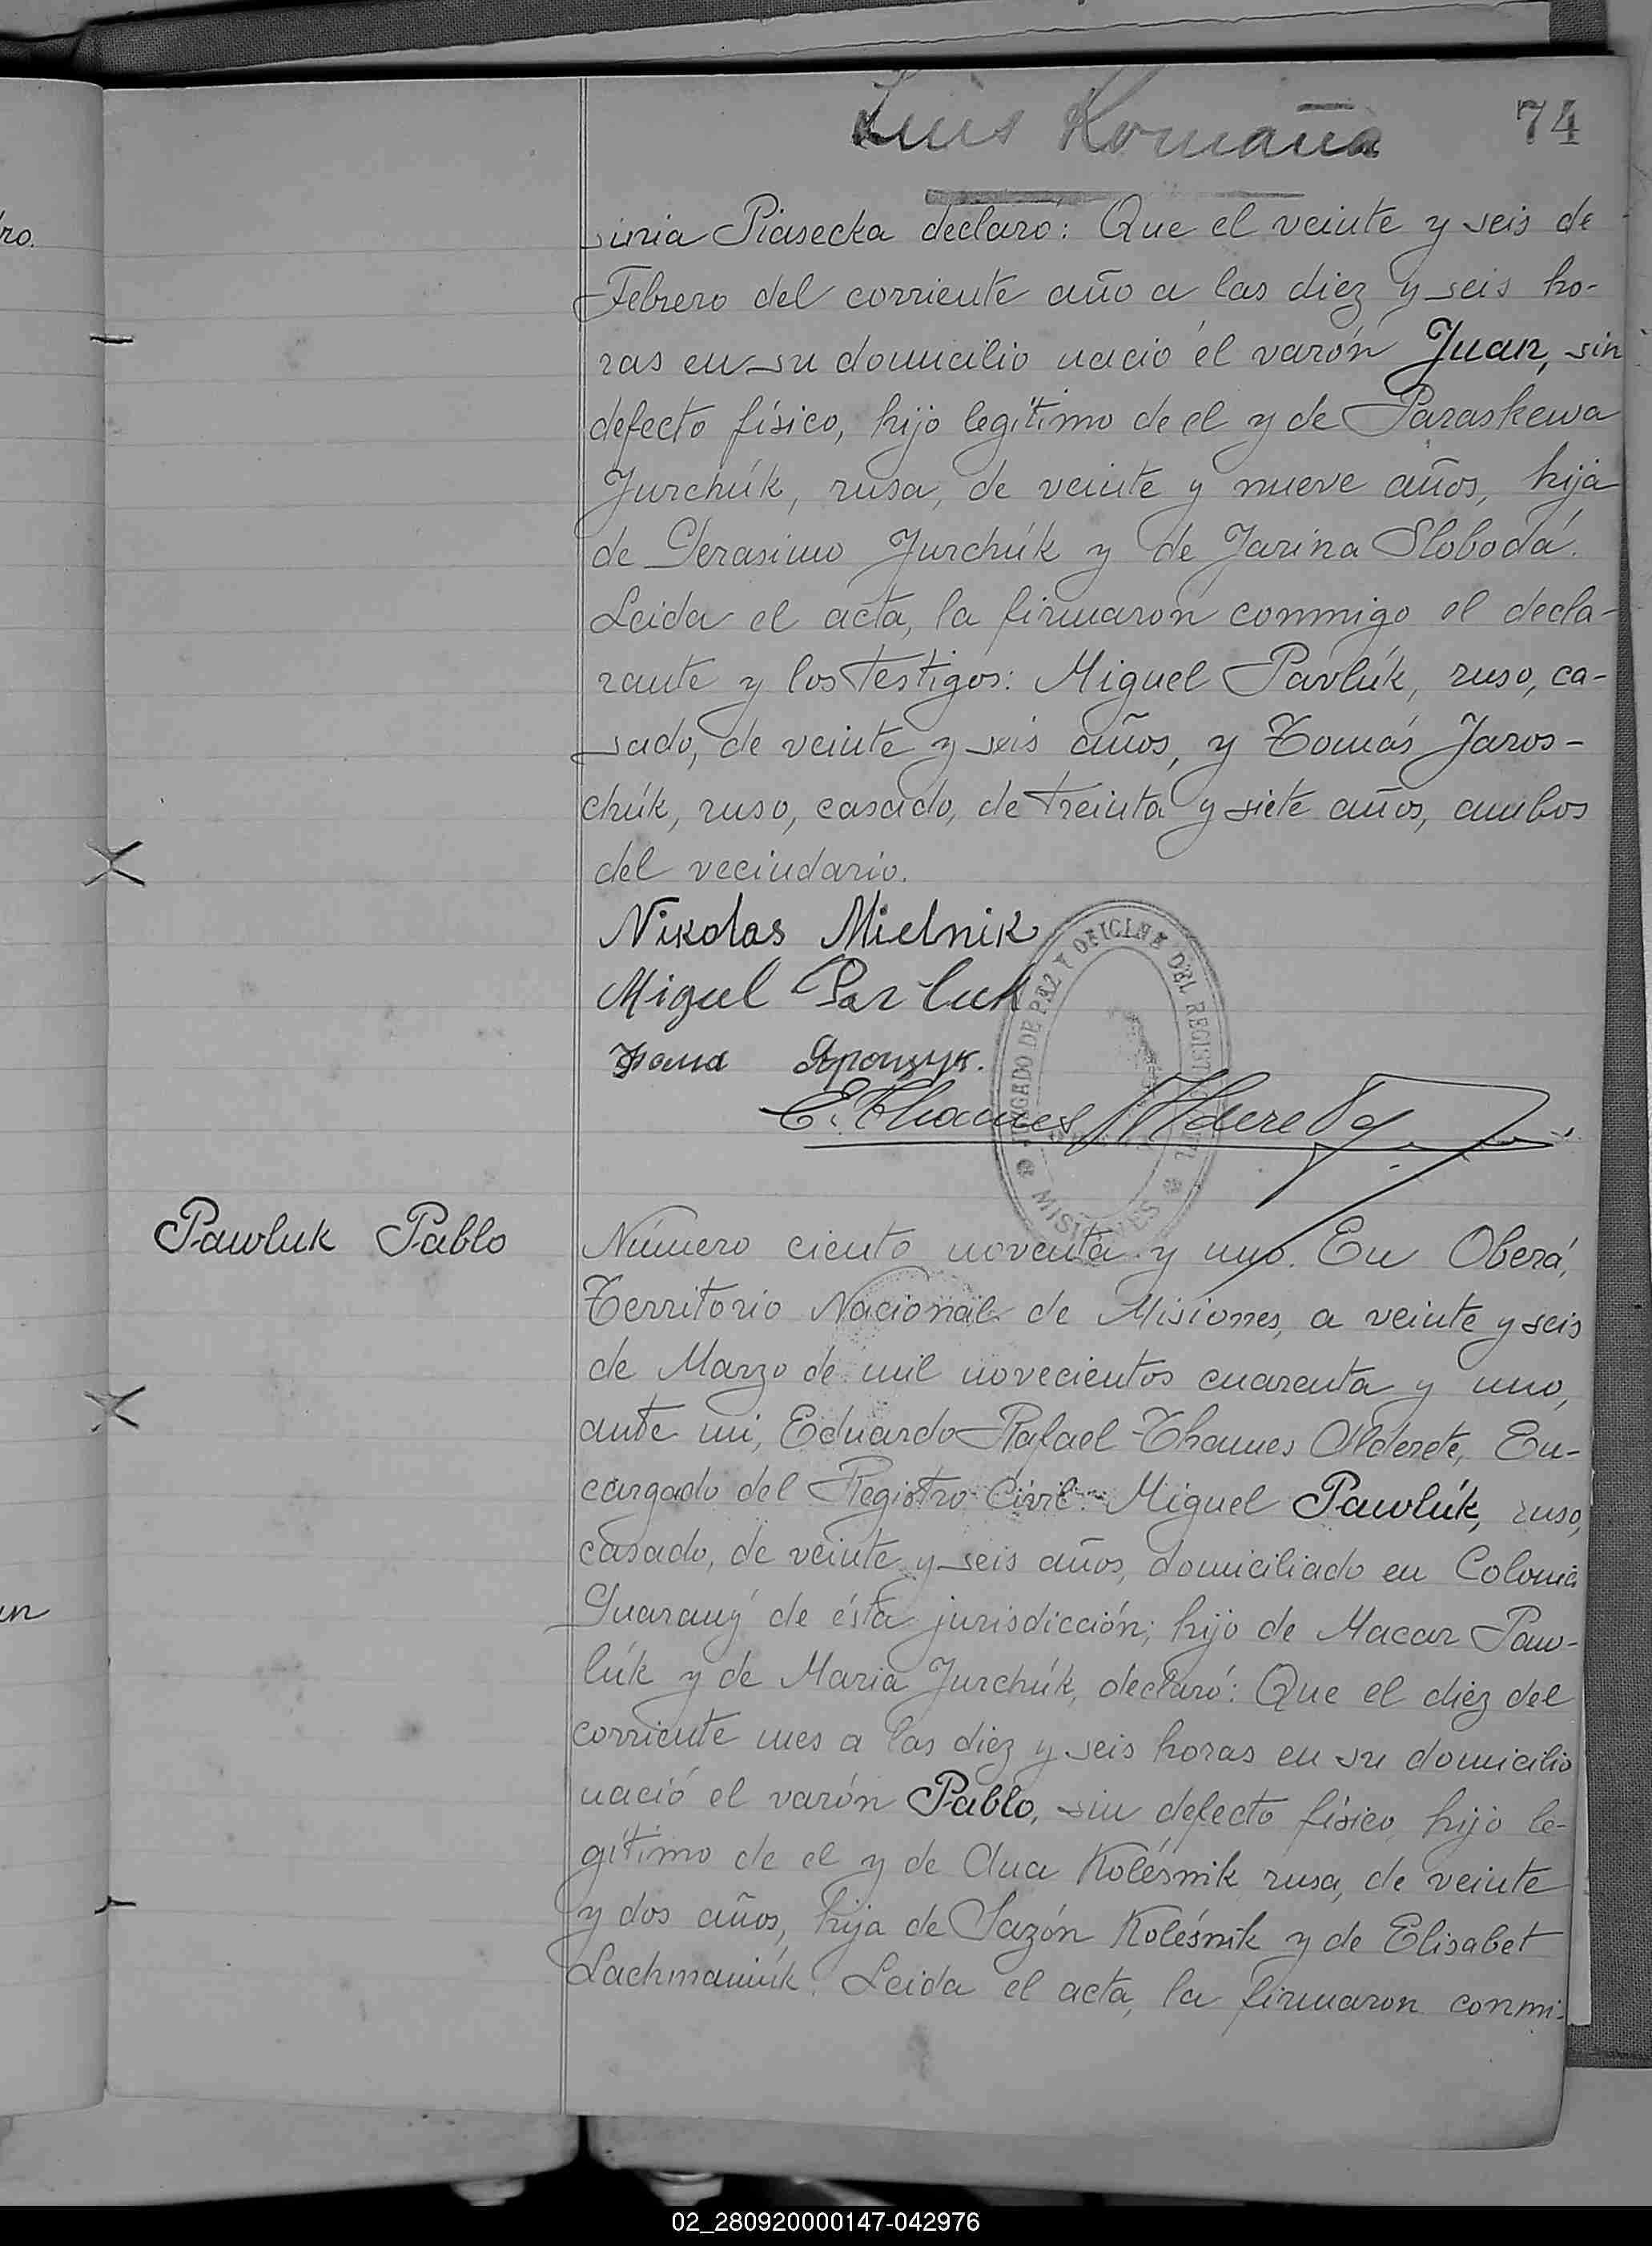 Luis Romaña
74
ro.
sinia Piasecka declaró: Que el veinte y seis de
Febrero del corriente año a las diez y seis ho-
ras en su domicilio nació el varón Juan, sin
defecto físico, hijo legítimo de el y de Paraskewa
Jurchúk, rusa, de veinte y nueve años, hija
de Gerasimo Jurchúk y de Jarina Slobodá.
Leida el acta, la firmaron conmigo el decla-
rante y los testigos: Miguel Pavlúk, ruso, ca-
sado, de veinte y seis años, y Tomás Jaros-
chúk, ruso, casado, de treinta y siete años, ambos
del vecindario.
Nikolas Mielnik
Miguel Pavluk
JUZGADO DE PAZ Y OFICINA DEL REGISTRO CIVIL
MISIONES
E. Thames Alderete
Pawluk Pablo
Número ciento noventa y uno. En Oberá,
Territorio Nacional de Misiones, a veinte y seis
de Marzo de mil novecientos cuarenta y uno,
ante mi, Eduardo Rafael Thames Alderete, En-
cargado del Registro Civil: Miguel Pawlúk, ruso,
casado, de veinte y seis años, domiciliado en Colonia
Guarany de ésta jurisdicción; hijo de Macar Paw-
lúk y de Maria Jurchúk, declaró: Que el diez del
corriente mes a las diez y seis horas en su domicilio
nació el varón Pablo, sin defecto físico, hijo le-
gítimo de el y de Ana Kolésnik rusa, de veinte
y dos años, hija de Sazón Kolésnik y de Elisabet
Lachmaniúk. Leida el acta, la firmaron conmi-
02_280920000147-042976